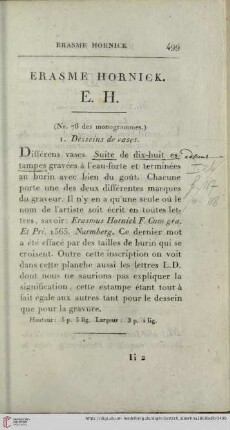 ERASME HORNICK 499
ERASME HORNICK.
E. H.
(Nr. 78 des monogrammes.)
1. Desseins de vases.
Différens vases. Suite de dix-huit es-
tampes gravées à l'eau-forte et terminées
au burin avec bien du goût. Chacune
porte une des deux différentes marques
du graveur. Il n'y en a qu'une seule où le
nom de l'artiste soit écrit en toutes let-
tres, savoir: Erasmus Hornick F.
Et Pri. 1565. Nurmberg. Ce dernier mot
a été effacé par des tailles de burin qui se
croisent. Outre cette inscription on voit
dans cette planche aussi les lettres E. D.
dont nous ne saurions pas expliquer la
signification, cette estampe étant tout à
fait égale aux autres tant pour le dessein
que pour la gravure.
Hauteur: 5 p. 5 lig. Largeur: 3 p. lig.
Ii 2